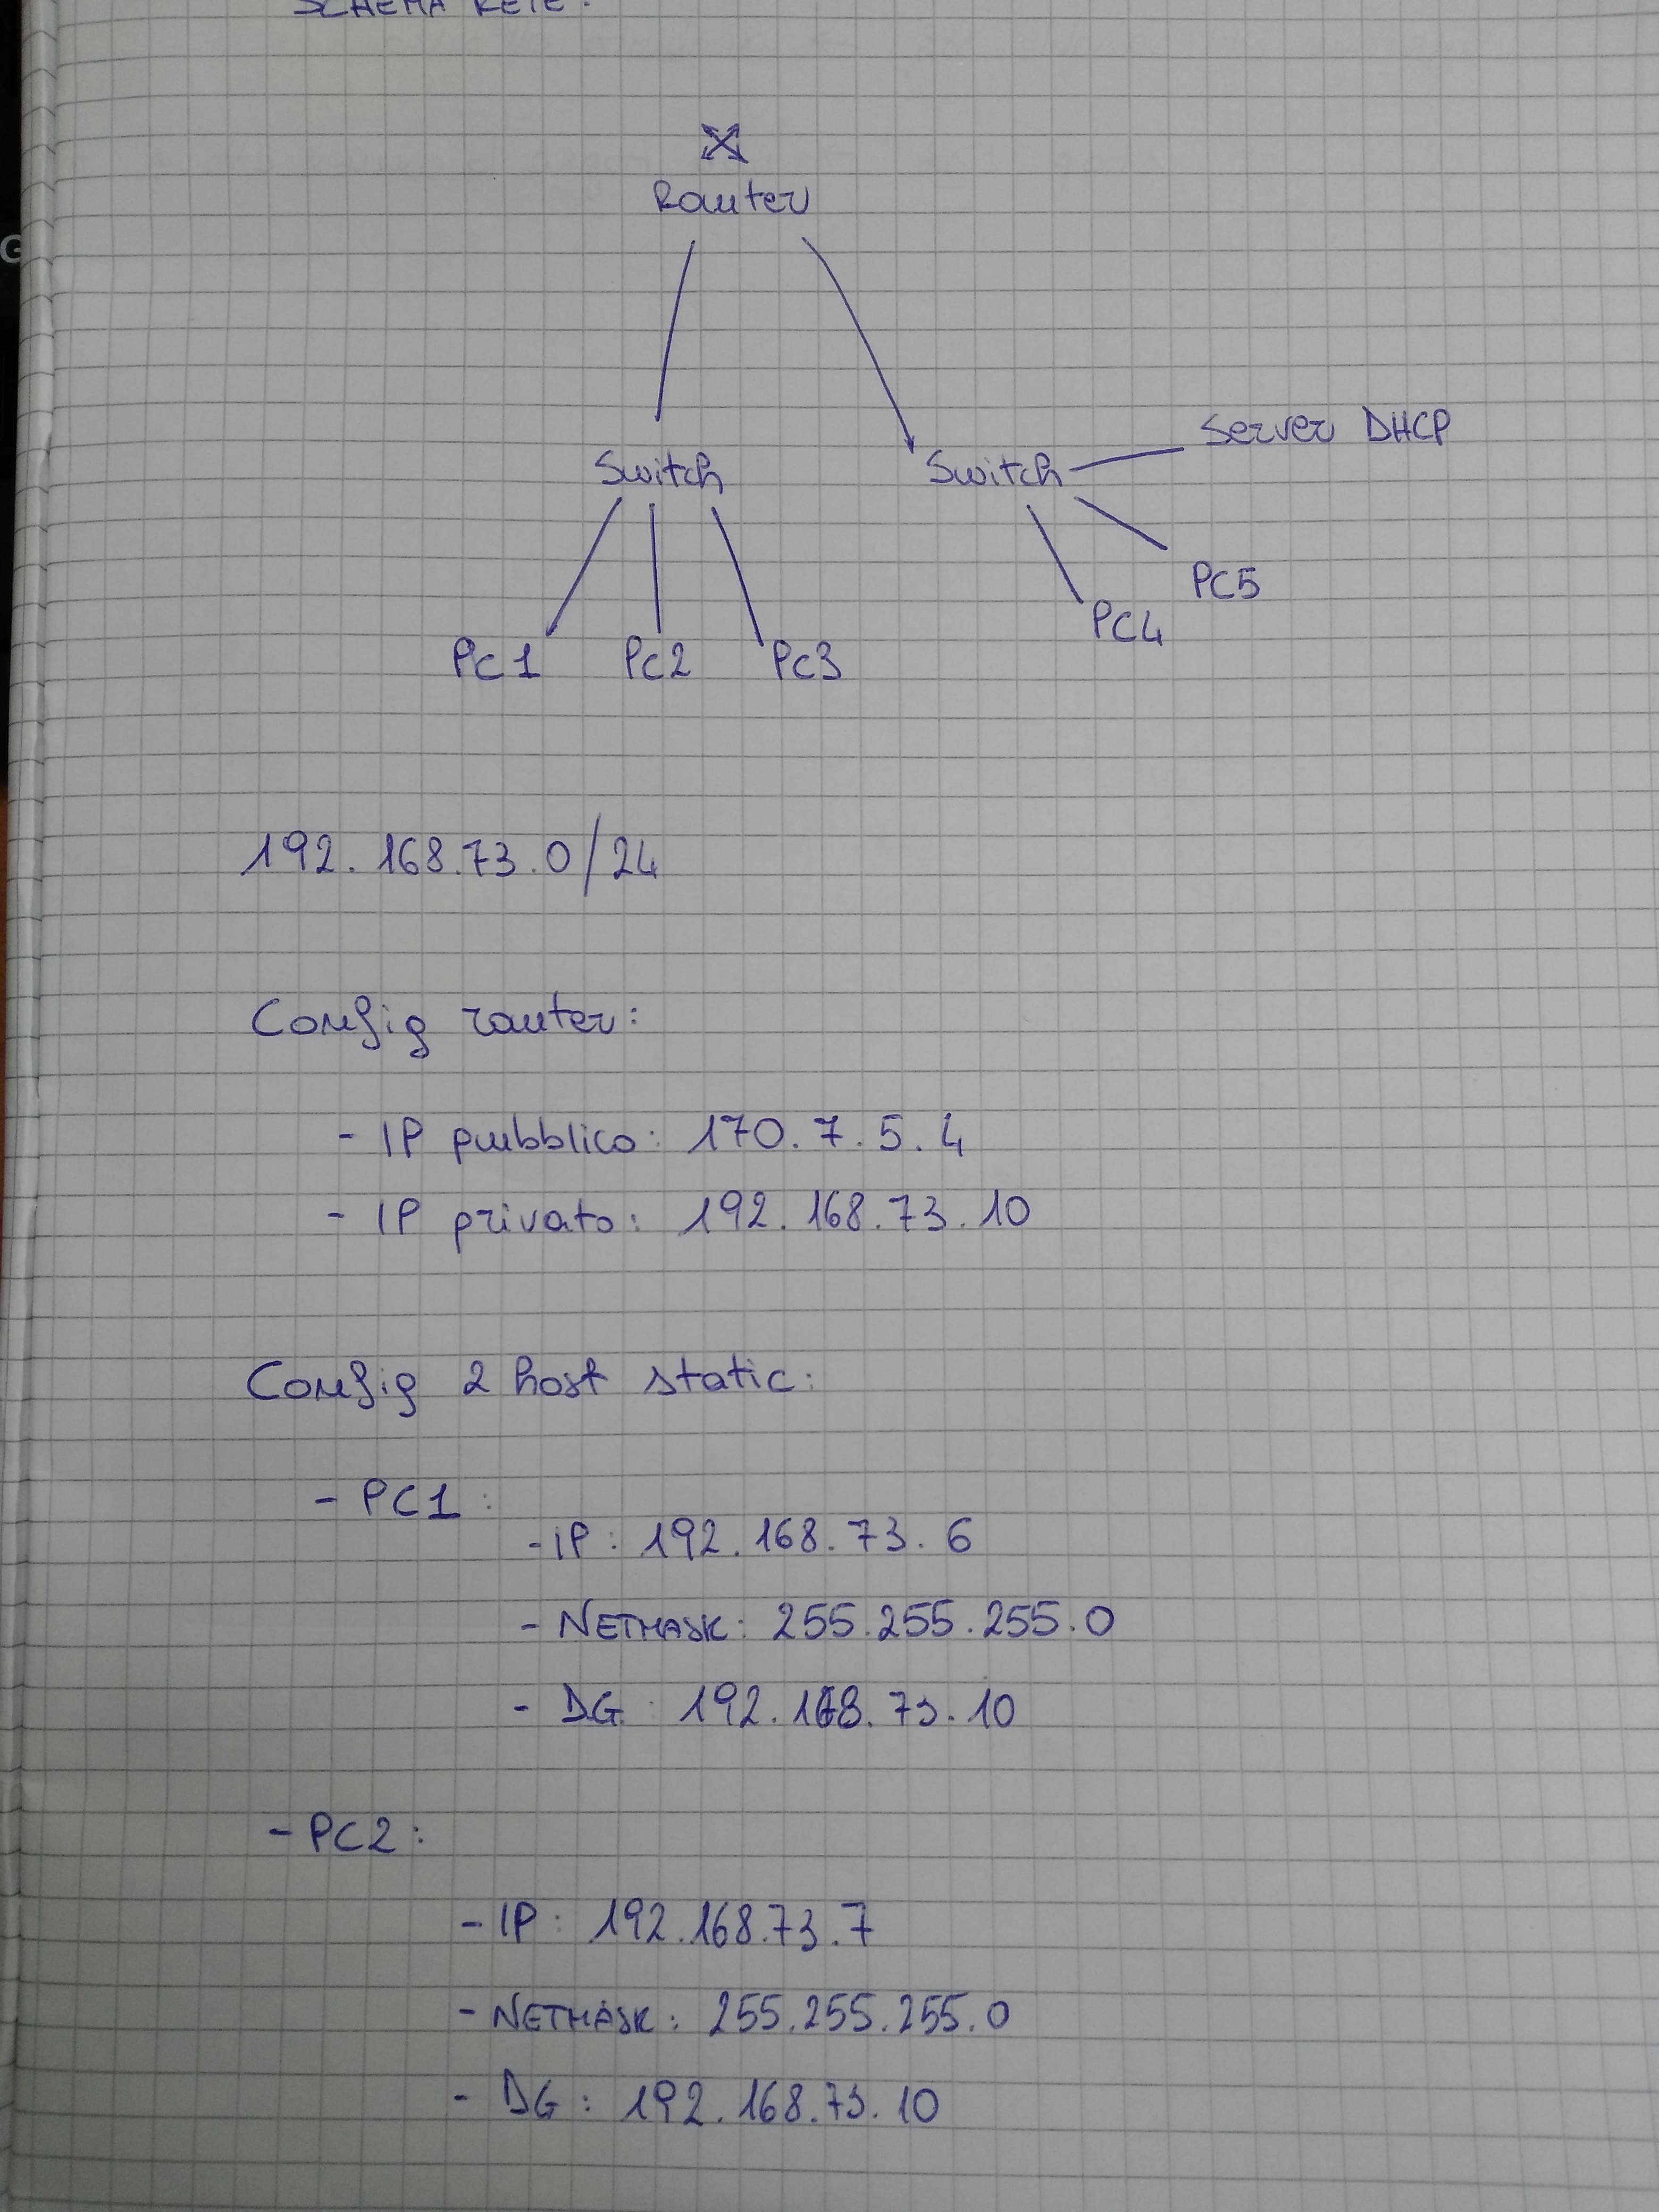 SCHEMA RETE:
Router
Switch
Switch
Server DHCP
PC1
PC2
PC3
PC4
PC5
192.168.73.0/24
Config router:
- IP pubblico: 170.7.5.4
- IP privato: 192.168.73.10
Config 2 host static:
- PC1:
- IP: 192.168.73.6
- NETMASK: 255.255.255.0
- DG: 192.168.73.10
- PC2:
- IP: 192.168.73.7
- NETMASK: 255.255.255.0
- DG: 192.168.73.10